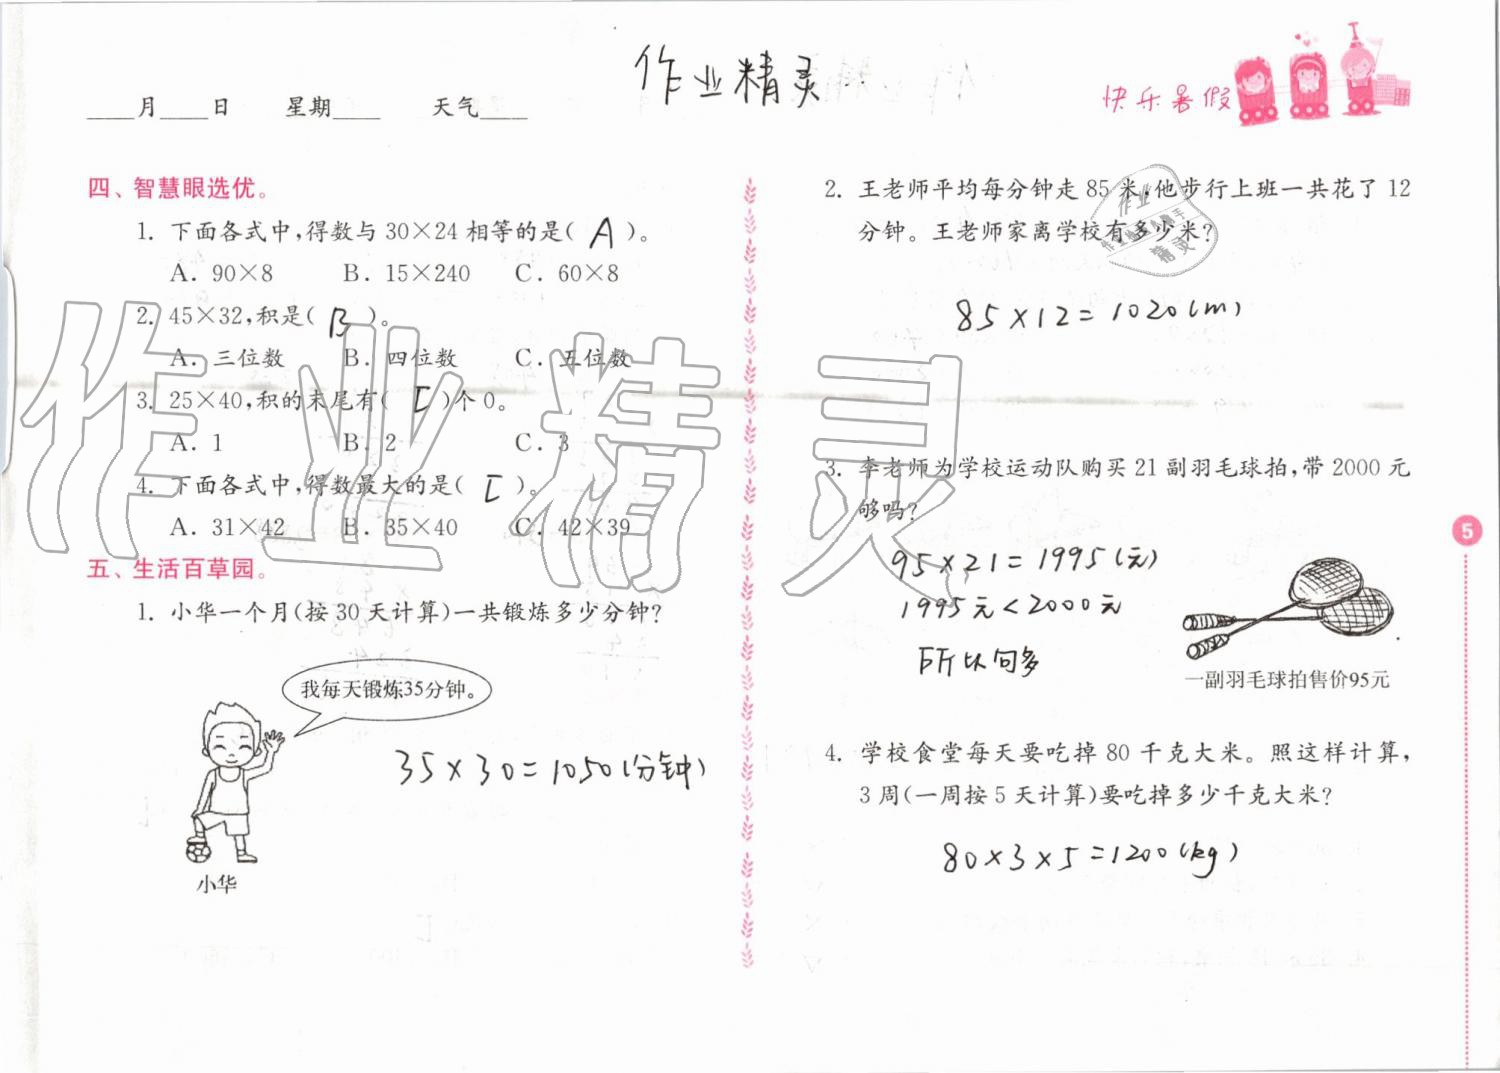 作业精灵
快乐暑假
____月____日 星期____ 天气____
四、智慧眼选优。
1. 下面各式中,得数与30×24相等的是( A )。
A. 90×8 B. 15×240 C. 60×8
2. 45×32,积是( B )。
A. 三位数 B. 四位数 C. 五位数
3. 25×40,积的末尾有( C )个0。
A. 1 B. 2 C. 3
4. 下面各式中,得数最大的是( C )。
A. 31×42 B. 35×40 C. 42×39
五、生活百草园。
1. 小华一个月(按30天计算)一共锻炼多少分钟?
我每天锻炼35分钟。
35×30=1050(分钟)
小华
2. 王老师平均每分钟走85米,他步行上班一共花了12
分钟。王老师家离学校有多少米?
85×12=1020(m)
3. 李老师为学校运动队购买21副羽毛球拍,带2000元
够吗?
95×21=1995(元)
1995元<2000元
所以句多
一副羽毛球拍售价95元
4. 学校食堂每天要吃掉80千克大米。照这样计算,
3周(一周按5天计算)要吃掉多少千克大米?
80×3×5=1200(kg)
5
作业精灵
作业
精灵